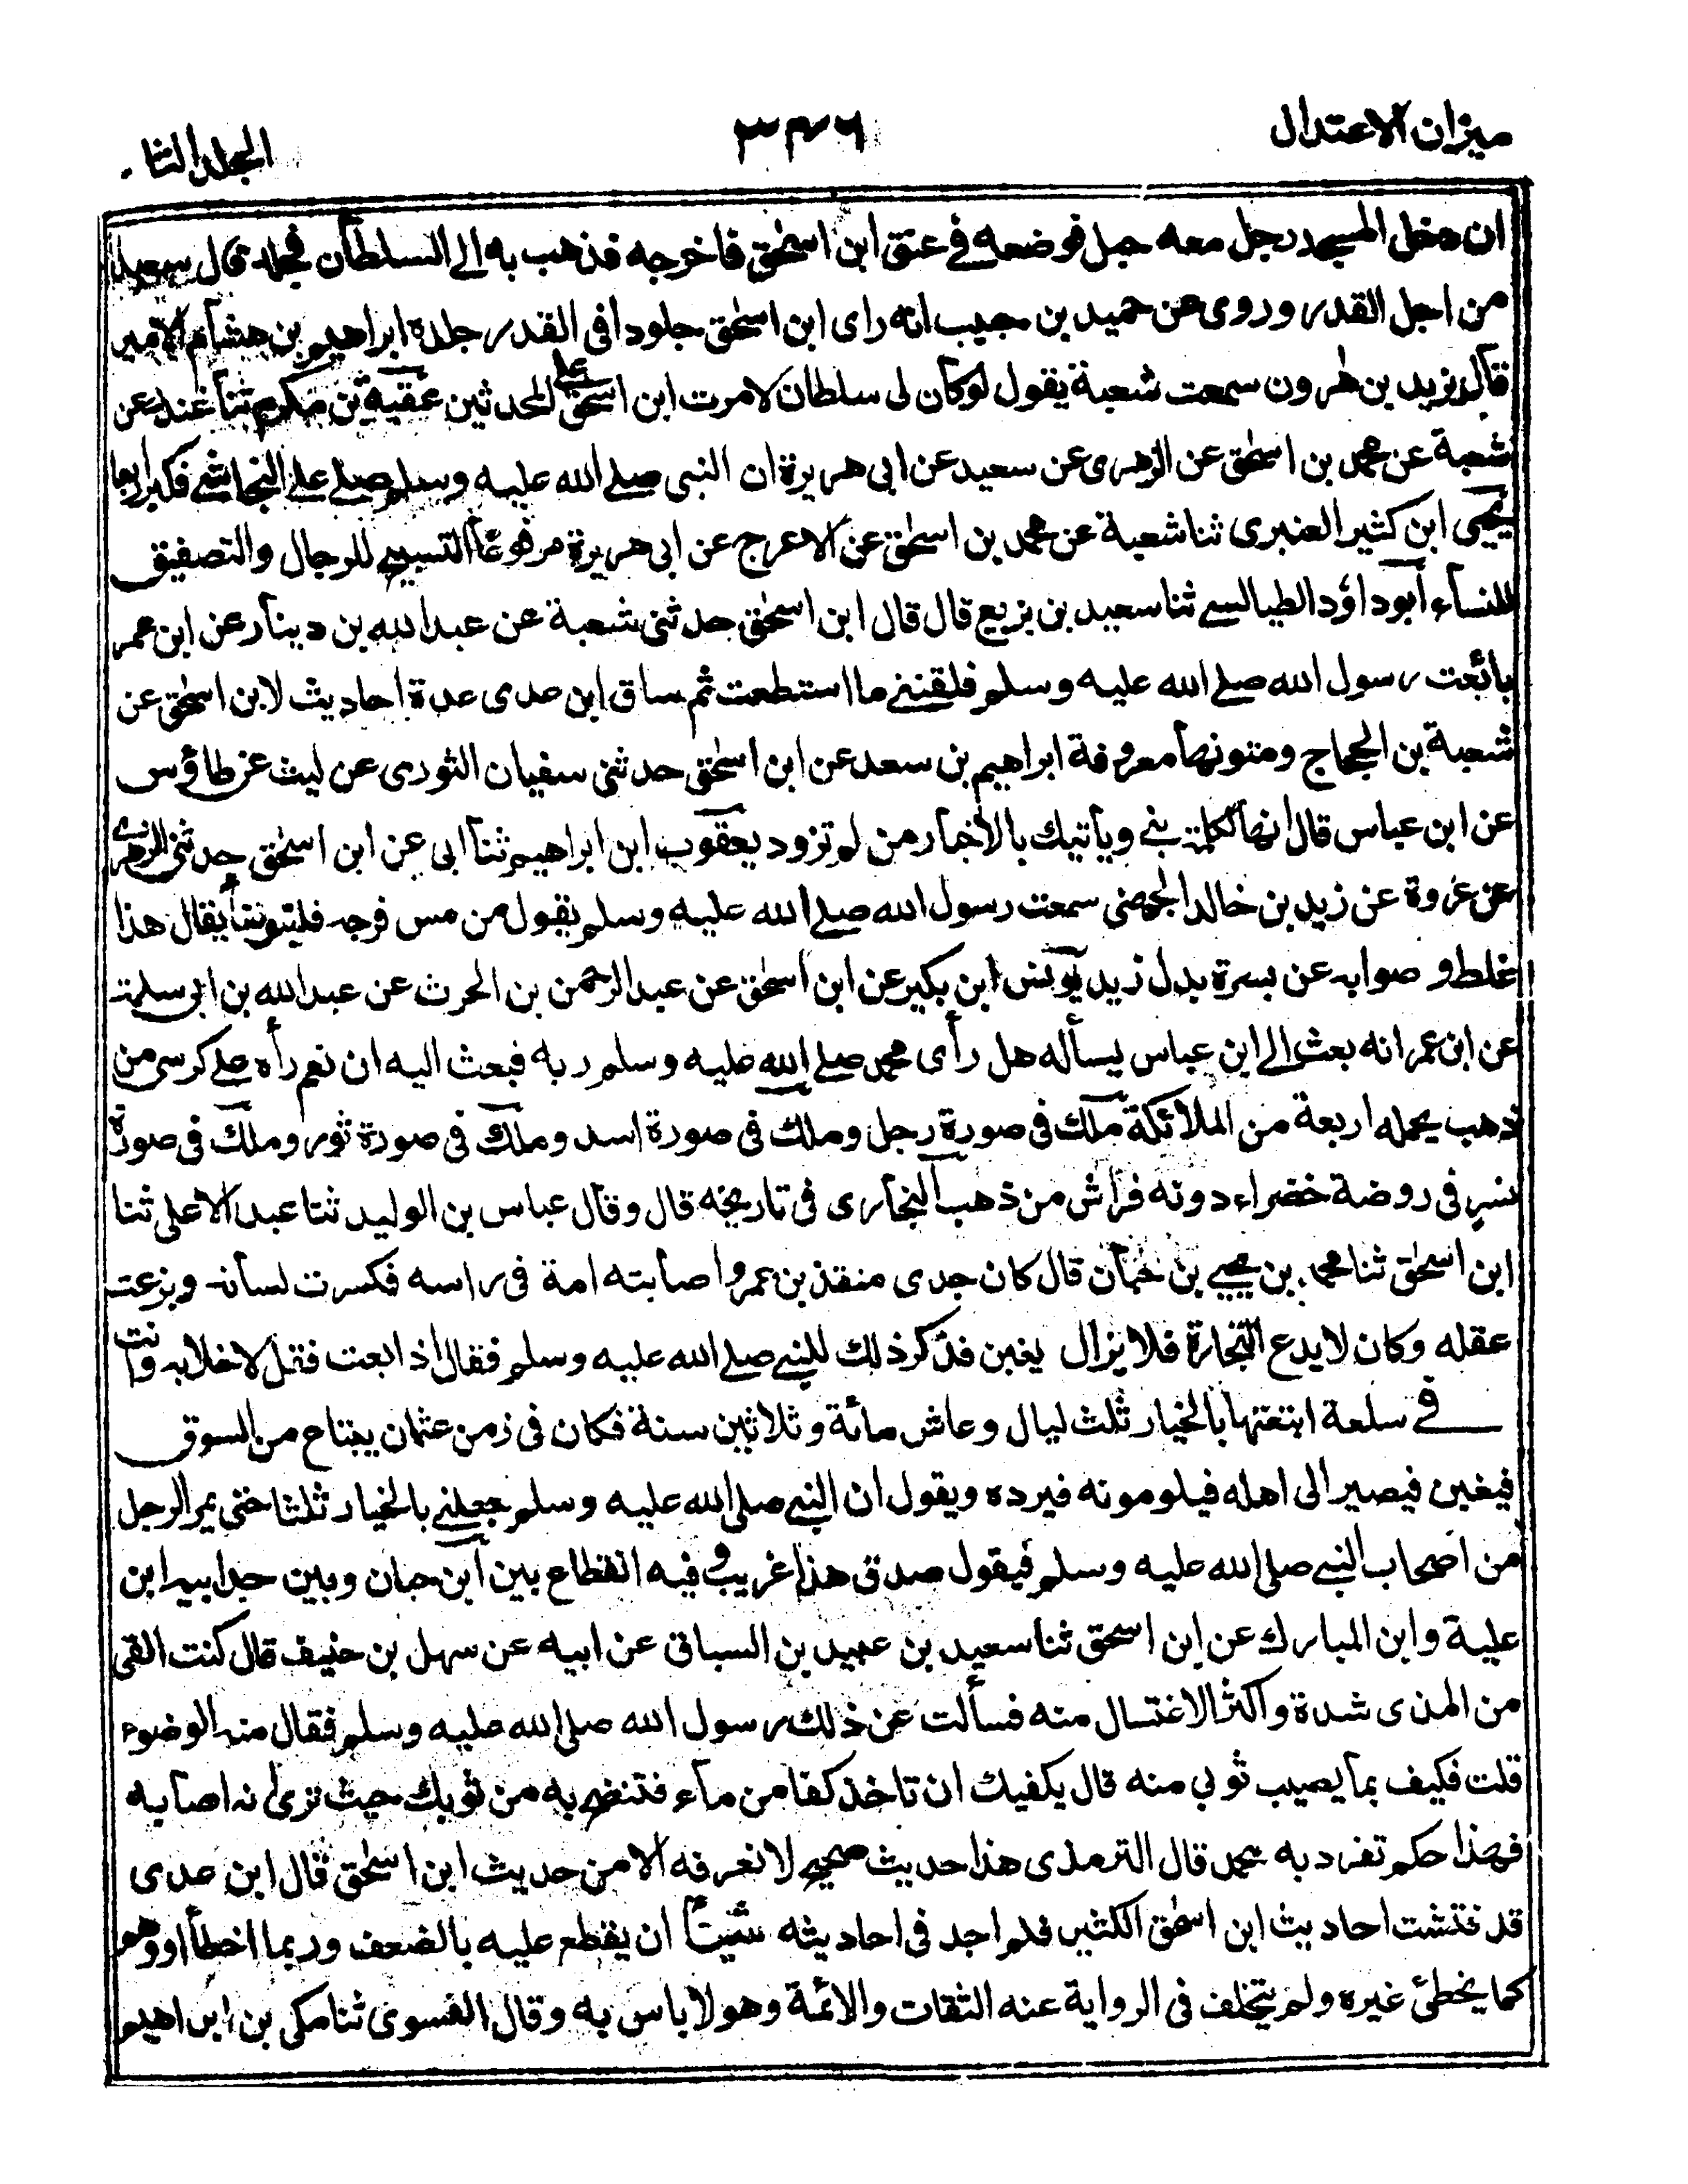 ميزان الاعتدال
٣٤٦
المجلد الثا
ان دخل المسجد رجل معه حبل فوضعه في عنق ابن اسحٰق فاخرجه فذهب به الى السلطان فجلد قال سعيد
من اجل القدر وروى عن حميد بن حبيب انه راى ابن اسحٰق جلودا فى القدر جلدة ابراهيم بن هشام الامير
قال يزيد بن هٰرون سمعت شعبة يقول لوكان لى سلطان لامرت ابن اسحٰق على المحدثين عقبة بن مكرم ثنا غندر عن
شعبة عن محمد بن اسحٰق عن الزهرى عن سعيد عن ابى هريرة ان النبى صلى الله عليه وسلم صلى على النجاشى فكبر اربعا
يحيى ابن كثير العنبرى ثنا شعبة عن محمد بن اسحٰق عن الاعرج عن ابى هريرة مرفوعا التسبيح للرجال والتصفيق
للنساء ابو داؤد الطيالسى ثنا سعيد بن بزيع قال قال ابن اسحٰق حدثنى شعبة عن عبد الله بن دينار عن ابن عمر
بائعت رسول الله صلى الله عليه وسلم فلقننى ما استطعت ثم ساق ابن عدى عدة احاديث لابن اسحٰق عن
شعبة بن الحجاج ومتونها معروفة ابراهيم بن سعد عن ابن اسحٰق حدثنى سفيان الثورى عن ليث عن طاؤس
عن ابن عباس قال انها لكلمة نبى ويأتيك بالأخبار من لم تزود يعقوب ابن ابراهيم ثنا ابى عن ابن اسحٰق حدثنى الزهرى
عن عروة عن زيد بن خالد الجهنى سمعت رسول الله صلى الله عليه وسلم يقول من مس فرجه فليتوضأ يقال هذا
غلط و صوابه عن بسرة بدل زيد يونس ابن بكير عن ابن اسحٰق عن عبد الرحمن بن الحرث عن عبد الله بن ابى سلمة
عن ابن عمر انه بعث الى ابن عباس يسأله هل رأى محمد صلى الله عليه وسلم ربه فبعث اليه ان نعم رأه على كرسى من
ذهب يحمله اربعة من الملائكة ملك فى صورة رجل وملك فى صورة اسد وملك فى صورة ثور وملك فى صورة
نسر فى روضة خضراء دونه فراش من ذهب البخارى فى تاريخه قال وقال عباس بن الوليد ثنا عبد الاعلى ثنا
ابن اسحٰق ثنا محمد بن يحيى بن حبان قال كان جدى منقذ بن عمرو اصابته امة فى راسه فكسرت لسانه وبزعت
عقله وكان لا يدع التجارة فلا يزال يغبن فذكر ذلك للنبى صلى الله عليه وسلم فقال اذ ابعت فقل لا خلابه وانت
فى سلعة ابتعتها بالخيار ثلث ليال وعاش مائة وثلاثين سنة فكان فى زمن عثمان يبتاع من السوق
فيغبن فيصير الى اهله فيلومونه فيرده ويقول ان النبى صلى الله عليه وسلم جعلنى بالخيار ثلثا حتى يمر الرجل
من اصحاب النبى صلى الله عليه وسلم فيقول صدق هذا غريب وفيه انقطاع بين ابن حبان وبين جد ابيه ابن
علية وابن المبارك عن ابن اسحق ثنا سعيد بن عبيد بن السباق عن ابيه عن سهل بن حنيف قال كنت القى
من المذى شدة واكثر الاغتسال منه فسألت عن ذلك رسول الله صلى الله عليه وسلم فقال منه الوضوء
قلت فكيف بما يصيب ثوبي منه قال يكفيك ان تاخذ كفا من ماء فتنضح به من ثوبك حيث ترى انه اصابه
فهذا حكم تفرد به محمد قال الترمذى هذا حديث صحيح لا نعرفه الا من حديث ابن اسحٰق قال ابن عدى
قد فتشت احاديث ابن اسحٰق الكثير فلم اجد فى احاديثه شيئا ان يقطع عليه بالضعف وربما اخطأ او وهم
كما يخطئ غيره ولم يتخلف فى الرواية عنه الثقات والائمة وهو لا باس به وقال الفسوى ثنا مكى بن ابراهيم